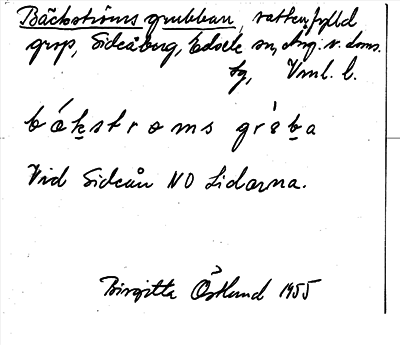 Bäckströms grubban, vattenfylld
grop, Sideåberg, Edsele sn, Ång. v. doms.
Vml. l.
Vid Sideån NO Lidarna.
Birgitta Östlund 1955